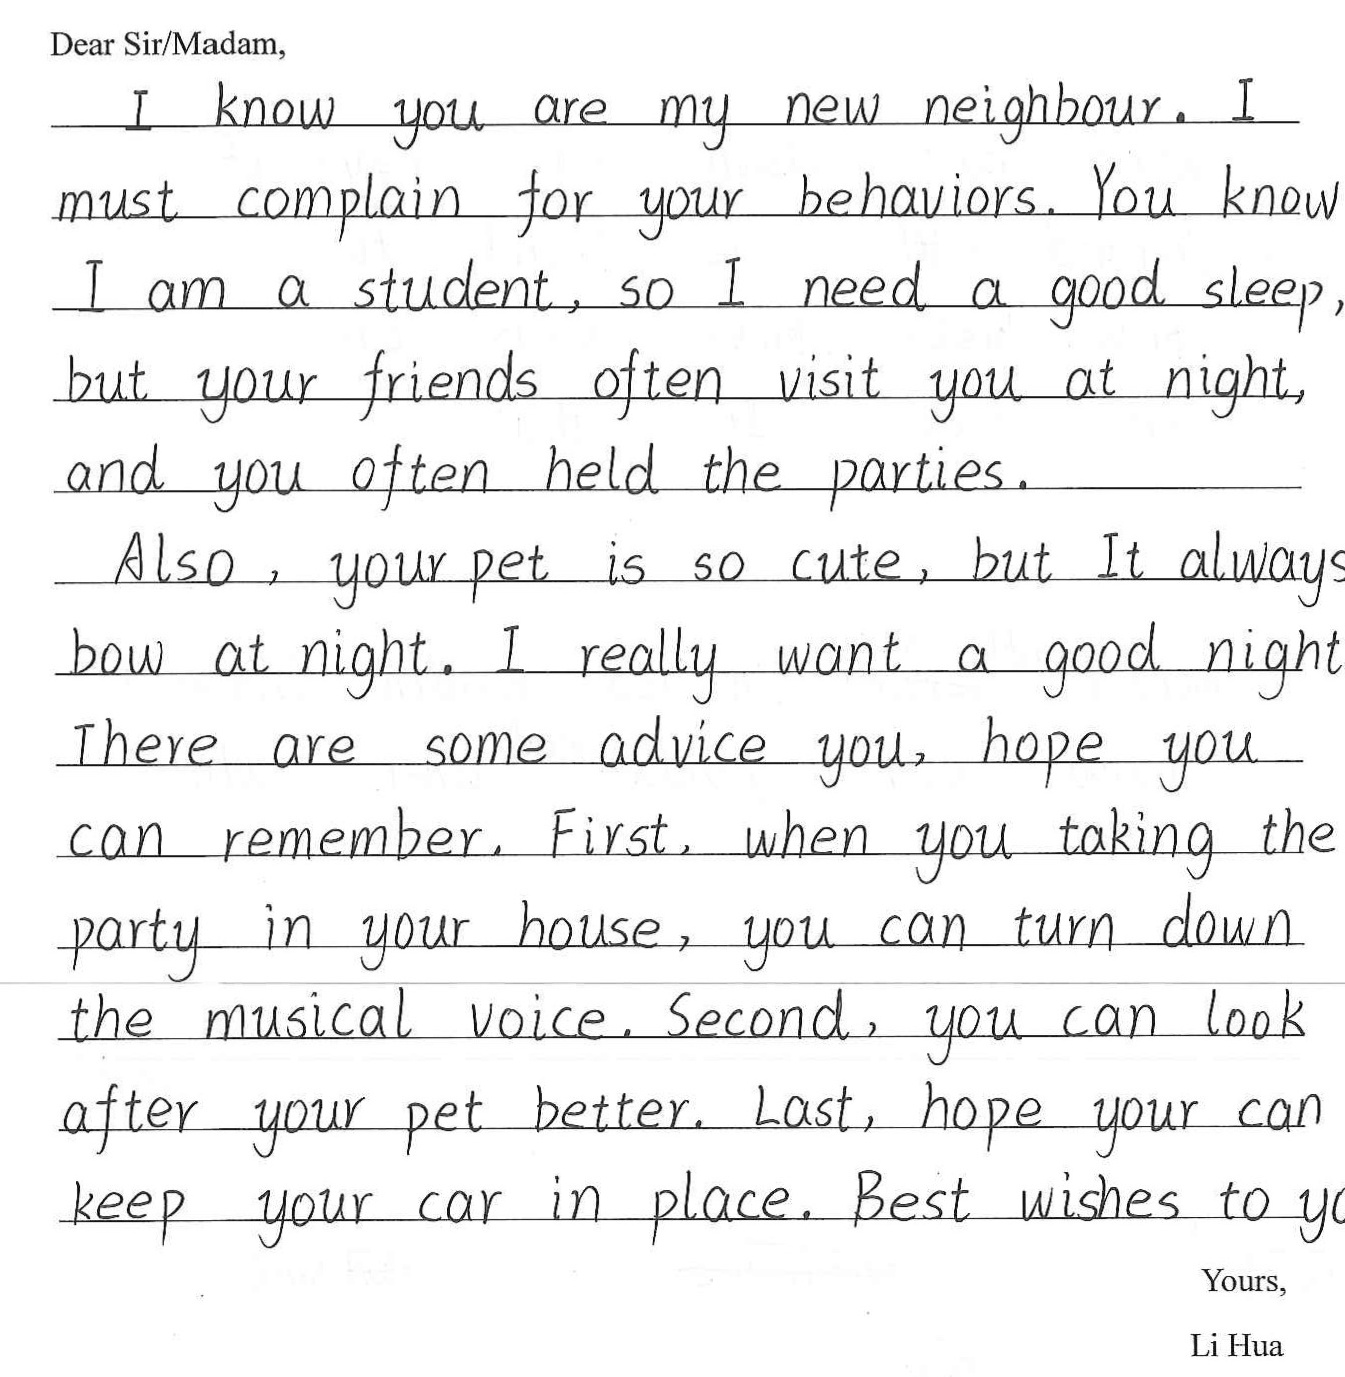 Dear Sir/Madam,
I know you are my new neighbour. I
must complain for your behaviors. You know
I am a student, so I need a good sleep,
but your friends often visit you at night,
and you often held the parties.
Also, your pet is so cute, but It always
bow at night. I really want a good night
There are some advice you, hope you
can remember. First, when you taking the
party in your house, you can turn down
the musical voice. Second, you can look
after your pet better. Last, hope your can
keep your car in place. Best wishes to
Yours,
Li Hua